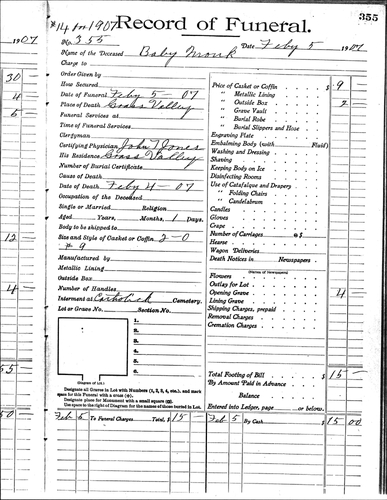 355
#14 in 1907
Record of Funeral.
1907
No. 355
Date Feby 5 1907
Name of the Deceased Baby Monk
Charge to
30
Order Given by
How Secured
4
Date of Funeral Feby 5 - 07
Place of Death Grass Valley
6
Funeral Services at
Time of Funeral Services
Clergyman
Certifying Physician John T Jones
His Residence Grass Valley
Number of Burial Certificate
Cause of Death
Date of Death Feby 4 - 07
Occupation of the Deceased
Single or Married Religion
Aged Years, Months, 1 Days.
Body to be shipped to
12
Size and Style of Casket or Coffin 2-0
# 9
Manufactured by
Metallic Lining
Outside Box
4
Number of Handles
Interment at Catholick Cemetery.
Lot or Grave No. Section No.
1.
2.
3.
4.
5.
6.
(Diagram of Lot.)
Designate all Graves in Lot with Numbers (1, 2, 3, 4, etc.), and mark
space for this Funeral with a cross (+).
Designate place for Monument with a small square (□).
Use space on the right of Diagram for the names of those buried in Lot.
Price of Casket or Coffin $ 9
" Metallic Lining
" Outside Box 2
" Grave Vault
" Burial Robe
" Burial Slippers and Hose
Engraving Plate
Embalming Body (with Fluid)
Washing and Dressing
Shaving
Keeping Body on Ice
Disinfecting Rooms
Use of Catafalque and Drapery
" Folding Chairs
" Candelabrum
Candles
Gloves
Crape
Number of Carriages @ $
Hearse
Wagon Deliveries
Death Notices in Newspapers
(Names of Newspapers)
Flowers
Outlay for Lot
Opening Grave 4
Lining Grave
Shipping Charges, prepaid
Removal Charges
Cremation Charges
55
Total Footing of Bill $ 15 -
By Amount Paid in Advance
Balance
Entered into Ledger, page or below.
50
Feb 5 To Funeral Charges Total, $ 15 -
Feb 5 By Cash $ 15 00